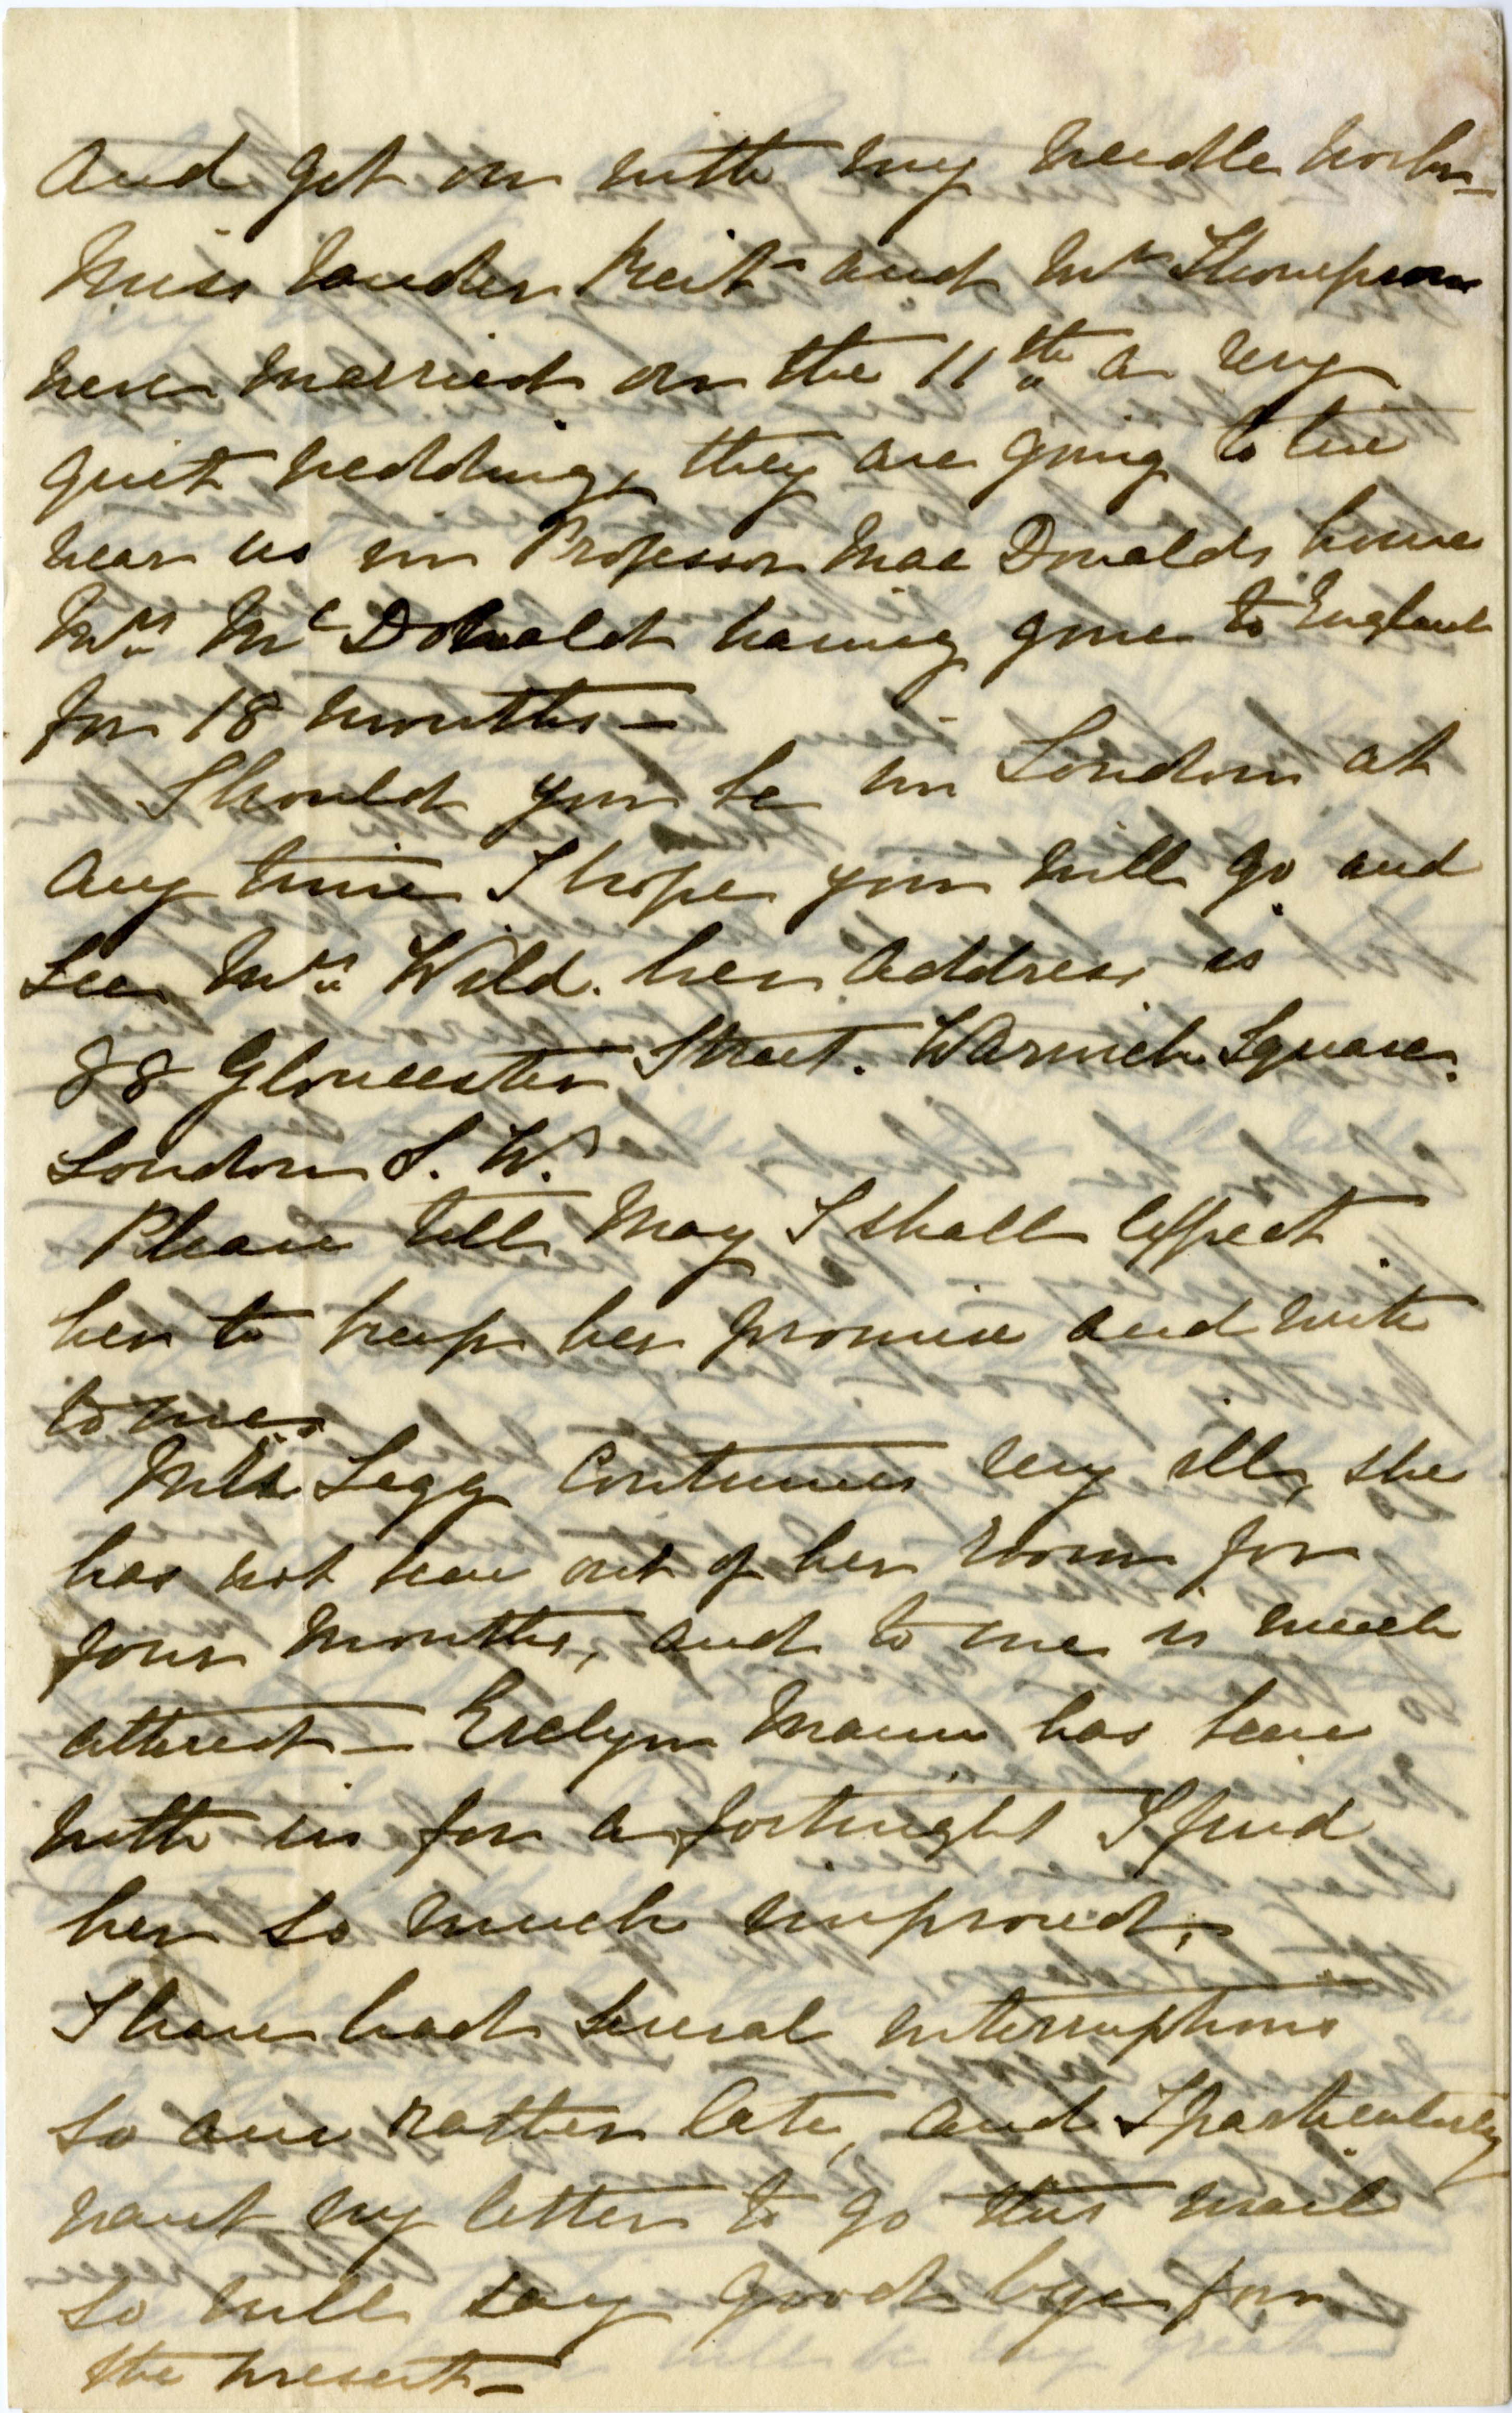 and get on with my needle work –
Miss Lauder Reid and Mr Thompson
were married on the 11th a very
quiet wedding, they are going to live
near us in Professor Mac Donalds house
Mrs Mc Donald having gone to England
for 18 months –
Should you be in London at
any time I hope you will go and
see Mrs Wild. her address is
88 Gloucester Street. Warwick Square.
London S. W.
Please tell May I shall expect
her to keep her promise and write
to me.
Mrs Legg continues very ill, she
has not been out of her room for
four months, and to me is much
altered – Evelyn Mann has been
with us for a fortnight I find
her so much improved.
I have had several interruptions
so am rather late, and I particularly
want my letter to go this mail
so will say good bye for
the present –